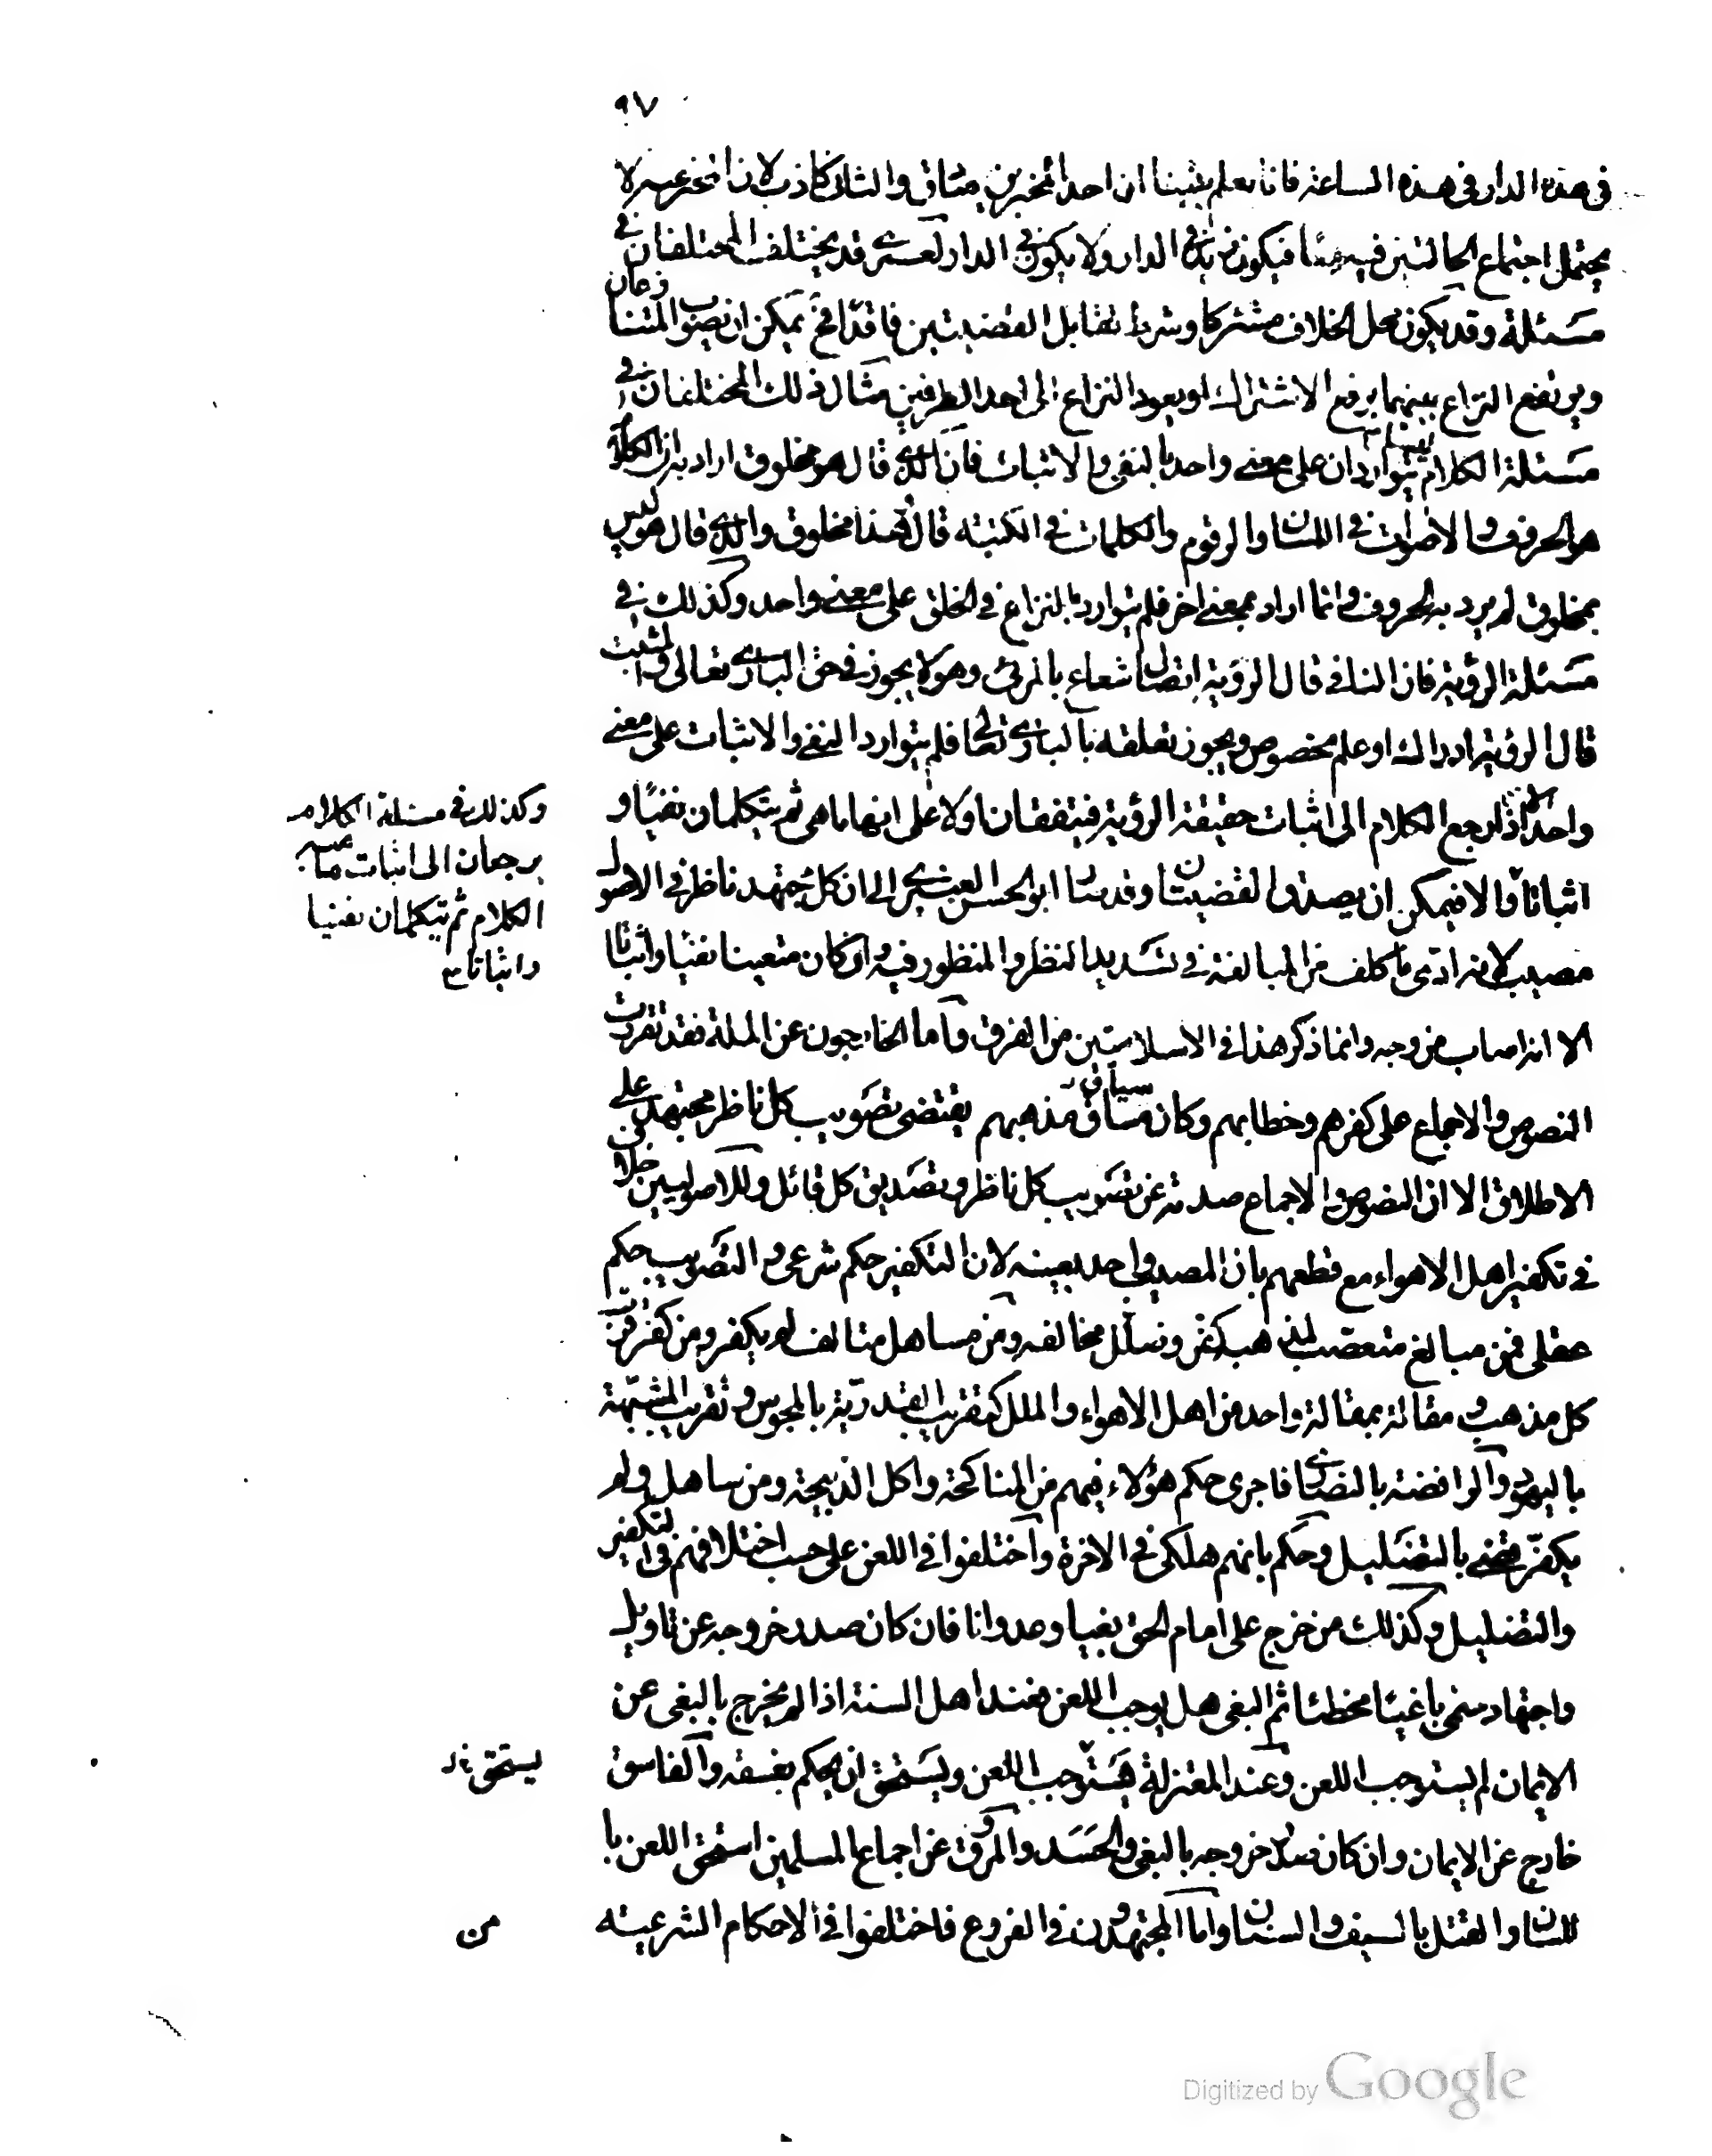 ٩٧
في هذه الدار في هذه الساعة فانا نعلم يقينا ان احد المخبرين صادق والثاني كاذب لان المخبر عنه لا
يحتمل اجتماع الحالتين فيه معا فيكون زيد في الدار ولا يكون في الدار لعمري قد يختلف المختلفان في
مسئلة وقد يكون محل الخلاف مشتركا وشرط تقابل القضيتين فاقدا فح يمكن ان يصوب المتنازعان
ويرتفع النزاع بينهما برفع الاشتراك او يعود النزاع الى احد الطرفين مثال ذلك المختلفان في
مسئلة الكلام ليسا يتواردان على معنى واحد بالنفي والاثبات فان الذي قال هو مخلوق اراد به ان الكلام
هو الحروف والاصوات في اللسان والرقوم والكلمات في الكتبة قال فهذا مخلوق والذي قال هو ليس
بمخلوق لم يرد به الحروف وانما اراد بمعنى اخر فلم يتواردا بالنزاع في الخلق على معنى واحد وكذلك في
مسئلة الرؤية فان النافي قال الرؤية اتصال شعاع بالمرئي وهو لا يجوز في حق الباري تعالى والمثبت
قال الرؤية ادراك او علم مخصوص ويجوز تعلقه بالباري تعالى فلم يتوارد النفي والاثبات على معنى
واحد الا اذا رجع الكلام الى اثبات حقيقة الرؤية فيتفقان اولا على انها ما هي ثم يتكلمان نفيا و
وكذلك في مسئلة الكلام
يرجعان الى اثبات ماهية
الكلام ثم يتكلمان نفيا
واثباتا
اثباتا والا فيمكن ان يصدق القضيتان وقد صار ابو الحسن العنبري الى ان كل مجتهد ناظر في الاصول
مصيب لانه ادى ما كلف من المبالغة في تسديد النظر والمنظور فيه وان كان متعينا نفيا واثباتا
الا انه اصاب من وجه وانما ذكر هذا في الاسلاميين من الفرق واما الخارجون عن الملة فقد تقررت
النصوص والاجماع على كفرهم وخطايهم وكان مساق سياق مذهبهم يقتضى تصويب كل ناظر مجتهد على
الاطلاق الا ان النصوص والاجماع صدته عن تصويب كل ناظر وتصديق كل قائل وللاصوليين خلاف
في تكفير اهل الاهواء مع قطعهم بان المصيب واحد بعينه لان التكفير حكم شرعي والتصويب حكم
عقلي فمن مبالغ متعصب لمذهبه كفر وضلل مخالفه ومن مساهل متالف لم يكفر ومن كفر قرن
كل مذهب ومقالة بمقالة واحد من اهل الاهواء والملل كتقريب القدرية بالمجوس وتقريب المشبهة
باليهود والرافضة بالنصارى فاجرى حكم هؤلاء فيهم من المناكحة واكل الذبيحة ومن ساهل ولم
يكفر قضى بالتضليل وحكم بانهم هلكى في الاخرة واختلفوا في اللعن على حسب اختلافهم في التكفير
والتضليل وكذلك من خرج على امام الحق بغيا وعدوانا فان كان صدر خروجه عن تاويل
واجتهاد سمى باغيا مخطئا ثم البغى هل يوجب اللعن فعند اهل السنة اذا لم يخرج بالبغى عن
الايمان لم يستوجب اللعن وعند المعتزلة يستوجب اللعن ويستحق ان يحكم بفسقه والفاسق
يستحق
خارج عن الايمان وان كان صدر خروجه بالبغى والحسد والمروق عن اجماع المسلمين استحق اللعن با
للسان والقتل بالسيف والسنان واما المجتهدون في الفروع فاختلفوا في الاحكام الشرعية
من
Digitized by Google